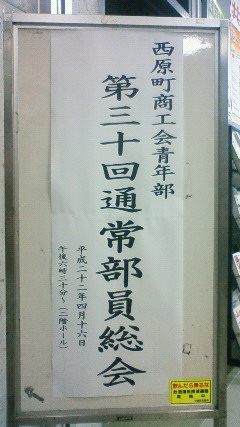 西原町商工会青年部
第三十回通常部員総会
平成二十二年四月十六日
午後六時三十分～(二階ホール)
飲んだら乗るな